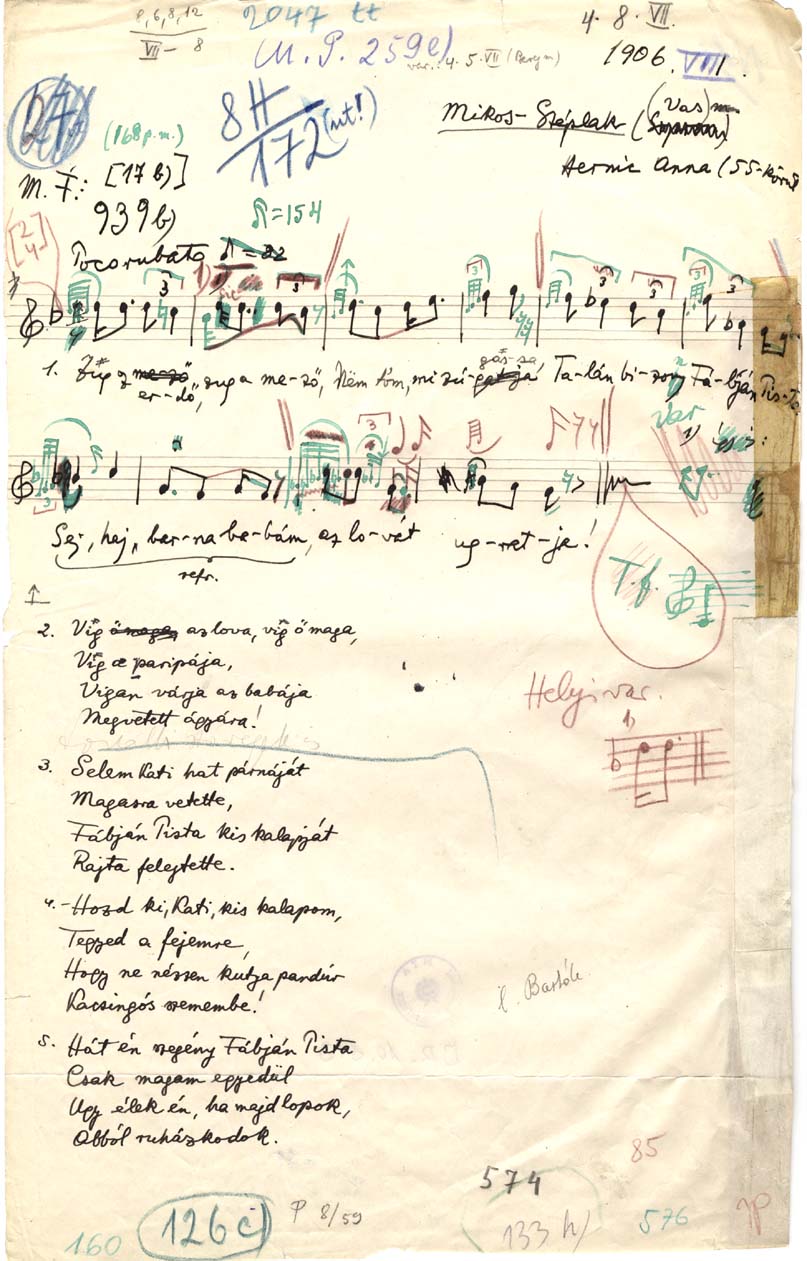 P, 6, 8, 12
VII – 8
2047 tt
4. 8. VII.
(M. P. 259e)
var.: 4. 5. VII
1906. VIII.
8H
172 (ut!)
Mikos-Széplak (Vas) m
(168 p.m.)
Hernic Anna (55-körül
M. F.: [17 b)]
939 b)
♪=154
[2
4]
Poco rubato ♪=
1)
3
3
3
3
3
3
1. Zúg az mező, zug a me-ző, Nëm tom, mi zú-gatja Ta-lán bi-zony Fá-bján Pis-ta
er-dő,
gás-sa
var
1)
3
Sej, haj, bar-na ba-bám, az lo-vát ug-rat-ja!
refr.
T. f.
2. Vig őmaga, az lova, vig ő maga,
Vig a paripája,
Vigan várja az babája
Megvetett ágyára!
Helyi var.
1)
3. Selem Kati hat párnáját
Magasra vetette,
Fábján Pista kis kalapját
Rajta felejtette.
4. – Hozd ki, Kati, kis kalapom,
Tegyed a fejemre,
Hogy ne nézzen kutya pandúr
Kacsingós szemembe!
l. Bartók
5. Hát én szegény Fábján Pista
Csak magam egyedül
Ugy élek én, ha majd lopok,
Abból ruházkodok.
85
574
P 8/59
126 c)
133 h)
576
160